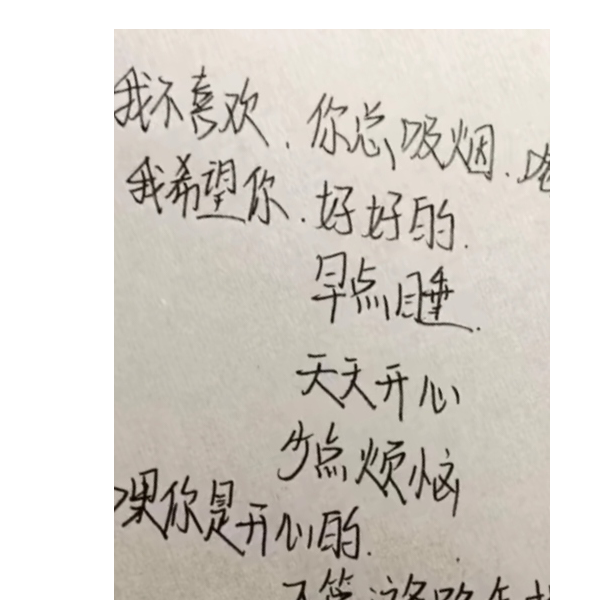 我不喜欢.你总吸烟.
我希望你.好好的.
早点睡.
天天开心
少点烦恼
果你是开心的.